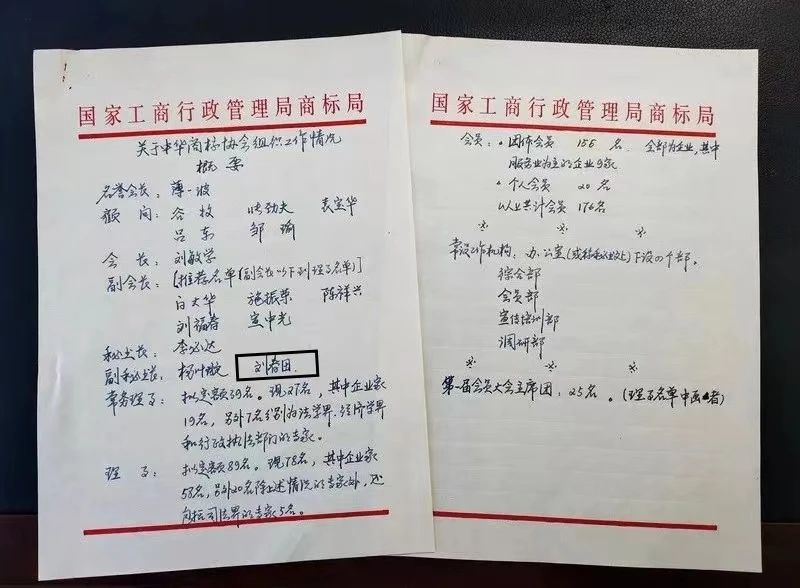 国家工商行政管理局商标局
关于中华商标协会组织工作情况
概要
名誉会长：薄一波
顾问：谷牧 张劲夫 袁宝华
吕东 邹瑜
会长：刘敏学
副会长：[推荐名单(副会长以下列理事名单)]
白大华 施振荣 陈祥兴
刘福春 宣中光
秘书长：李必达
副秘书长：杨叶璇 刘春田
常务理事：拟定额39名。现27名，其中企业家
19名，另外7名分别为法学界、经济学界
和行政执法部门的专家。
理事：拟定额89名。现78名，其中企业家
58名，另外20名除上述情况的专家外，还
包括司法界的专家5名。
国家工商行政管理局商标局
会员：·团体会员 156名。全部为企业，其中
服务业为主的企业9家
·个人会员 20名
以上共计会员 176名
常设工作机构：办公室(或称秘书处)下设四个部。
综合部
会员部
宣传培训部
调研部
第一届会员大会主席团：25名。(理事名单中画 者)